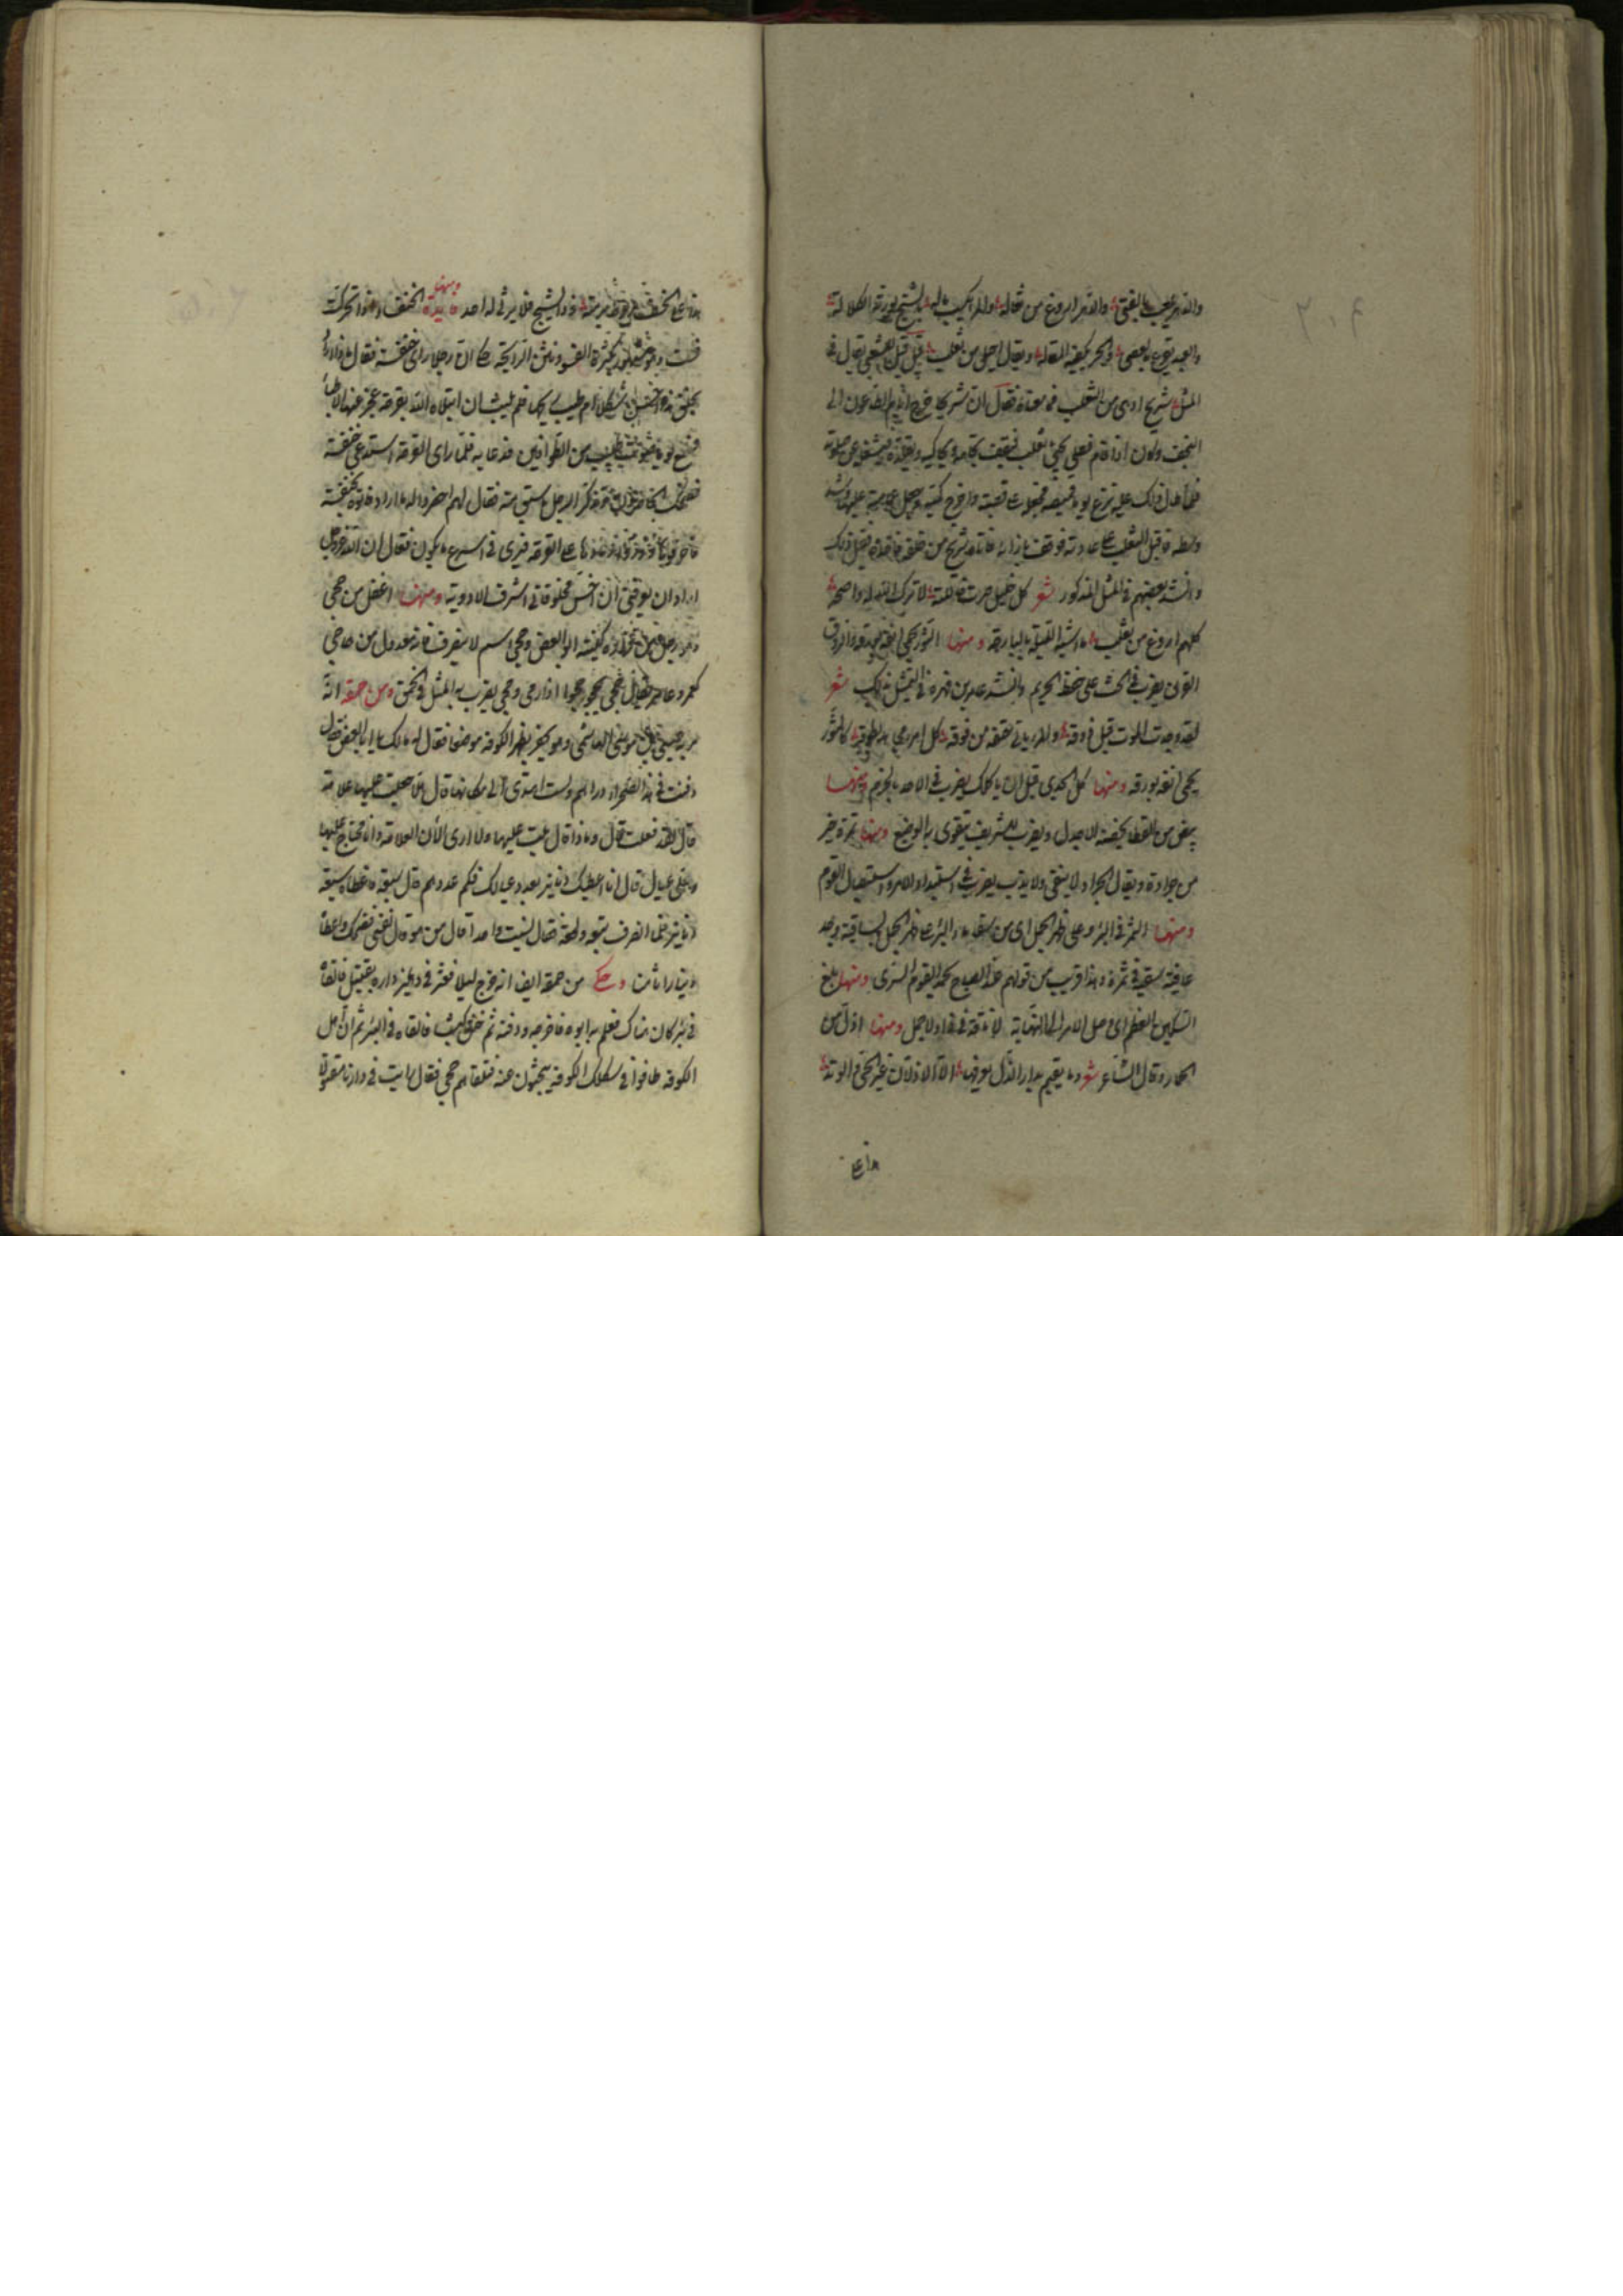 والدهر يلعب بالفتى والدهر اروغ من ثعاله والمرء يكسب ماله بالشح يورثه الكلاله
والعبد يقرع بالعصى والحر يكفيه المقاله ويقال ادهى من ثعلب قيل للشعبي يقال في
المثل شريح ادهى من الثعلب فما معناه فقال ان شريحا خرج ايام الطاعون الى
النجف وكان اذا قام فصلى يجئ ثعلب فيقف تجاهه ويحاكيه ويشغله عن صلوته
فلما طال ذلك عليه نزع يوما قميصه فجعله على قصبة واخرج كميه وجعل عمامته عليها
فاقبل الثعلب على عادته فوقف بازائه فاتاه شريح من خلفه فاخذه فقيل ذلك
وانشد بعضهم في المثل المذكور شعر كل خليل صرت خاللته لا ترك الله له واضحه
كلهم اروغ من ثعلب ما اشبه الليلة بالبارحه ومنها الثور يحمي انفه بروقه والروق
القرن يضرب في الحث على حفظ الحريم وانشد عامر بن فهيرة في التمثيل بذلك شعر
لقد وجدت الموت قبل ذوقه والمرء ياتي حتفه من فوقه كل امرئ مجاهد بطوقه كالثور
يحمي انفه بروقه ومنها كل الجدي قبل ان ياكلك يضرب في الامر بالحزم ومنها
بيض من القطا يحضنه الاجدل ويضرب للشريف يتقوى به الوضيع ومنها تمرة خير
من جرادة ويقال الجراد لا يبقى ولا يذر يضرب في استبداد الامر واستيصال القوم
ومنها التمر في البئر وعلى ظهر الجمل اى من سقى ماء البئر على ظهر الجمل بالسانية وجد
عاقبة سقيه في تمره وهذا قريب من قولهم عند الصباح يحمد القوم السرى ومنها بلغ
السكين العظم اى وصل الامر الى النهاية لا ناقة في هذا ولا جمل ومنها اذل من
الحمار وقال الشاعر شعر وما يقيم بدار الذل يعرفها الا الاذلان عير الحي والوتد
هذا على
هذا على الخسف مربوط برمته وذا يشج فلا يرثى له احد ومنها فايدة الخنفساء اذا تحركت
فست وهو مشهور بكثرة الفسو ونتن الرايحة حكى ان رجلا راى خنفسة فقال ماذا اراد
بخلق هذه احسن شكلها ام طيب ريحها فلم يلبث ان ابتلاه الله بقرحة عجز عنها الاطباء
فسمع يوما صوت طبيب من الطوافين فدعا به فلما راى القرحة استدعى خنفسة
فضحك الحاضرون فتذكر الرجل ما سبق منه فقال لهم احضروا له ما اراد فاتوه بخنفسة
فاحرقها وذر رمادها على القرحة فبرئ في اسرع ما يكون فقال ان الله عز وجل
اراد ان يعرفني ان اخس مخلوقاته اشرف الادوية ومنها اغفل من جحى
وهو رجل من فزارة كنيته ابو الغصن وجحى اسم لا ينصرف لانه معدول من جاحي
كعمر وعامر يقال جحى يجحو جحوا اذا رمى وجحى يضرب به المثل في الحمق ومن حمقه انه
مر به عيسى بن موسى الهاشمي وهو يحفر بظهر الكوفة موضعا فقال له مالك يا ابا الغصن فقال
دفنت في هذه الصحراء دراهم ولست اهتدى الى مكانها قال هلا جعلت عليها علامة
قال لقد فعلت قال وماذا قال غيمة عليها ولا ارى الآن العلامة وانا محتاج عليها
وعلى عيال قال انا اعطيك دنانير بعدد عيالك فكم عددهم قال سبعة فاعطاه سبعة
دنانير فلما انصرف تبعه ولحقه فقال نسيت واحدا قال من هو قال نفسي فضحك واعطاه
دينارا ثامنا وحكى من حمقه ايضا انه خرج ليلا فعثر في دهليز داره بقتيل فالقاه
في بئر كان هناك فعلم به ابوه فاخرجه ودفنه ثم خنق كبشا فالقاه في البئر ثم ان اهل
الكوفة طافوا في سكك الكوفة يبحثون عنه فتلقاهم جحى فقال رايت في دارنا مقتولا